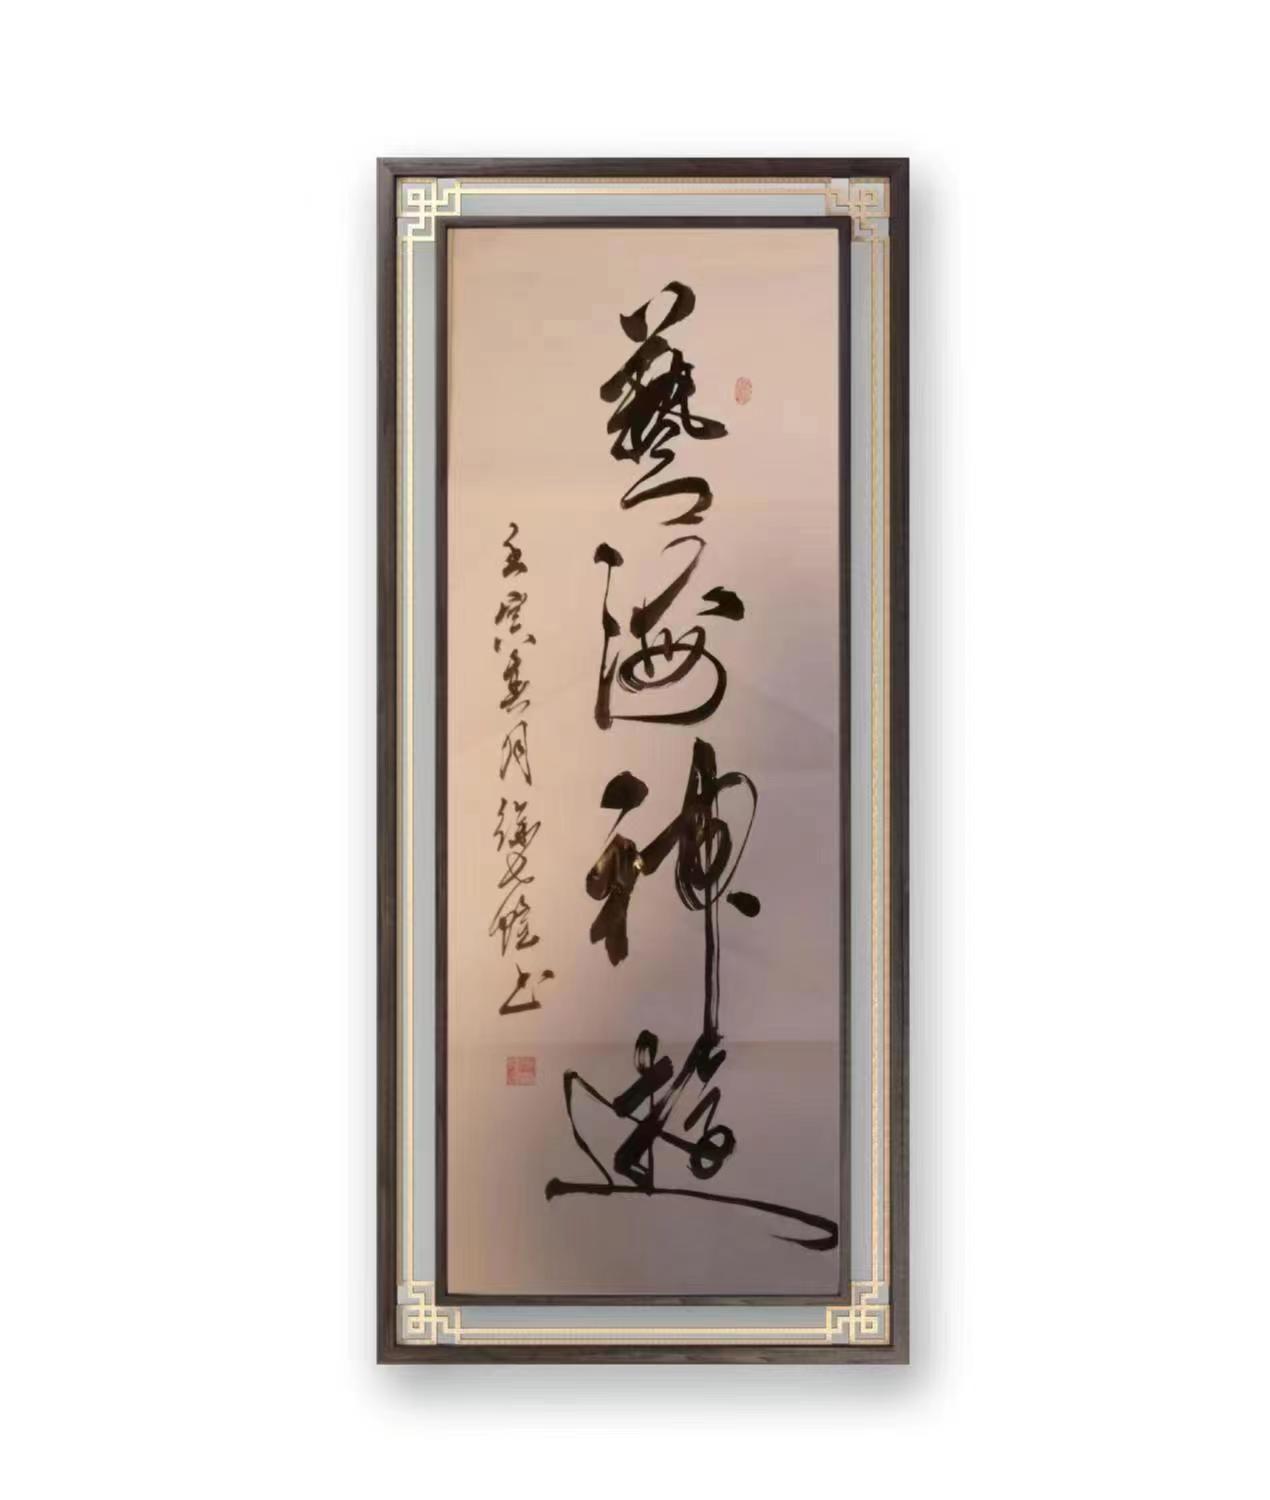 藝海神遊
壬寅春月徐
書